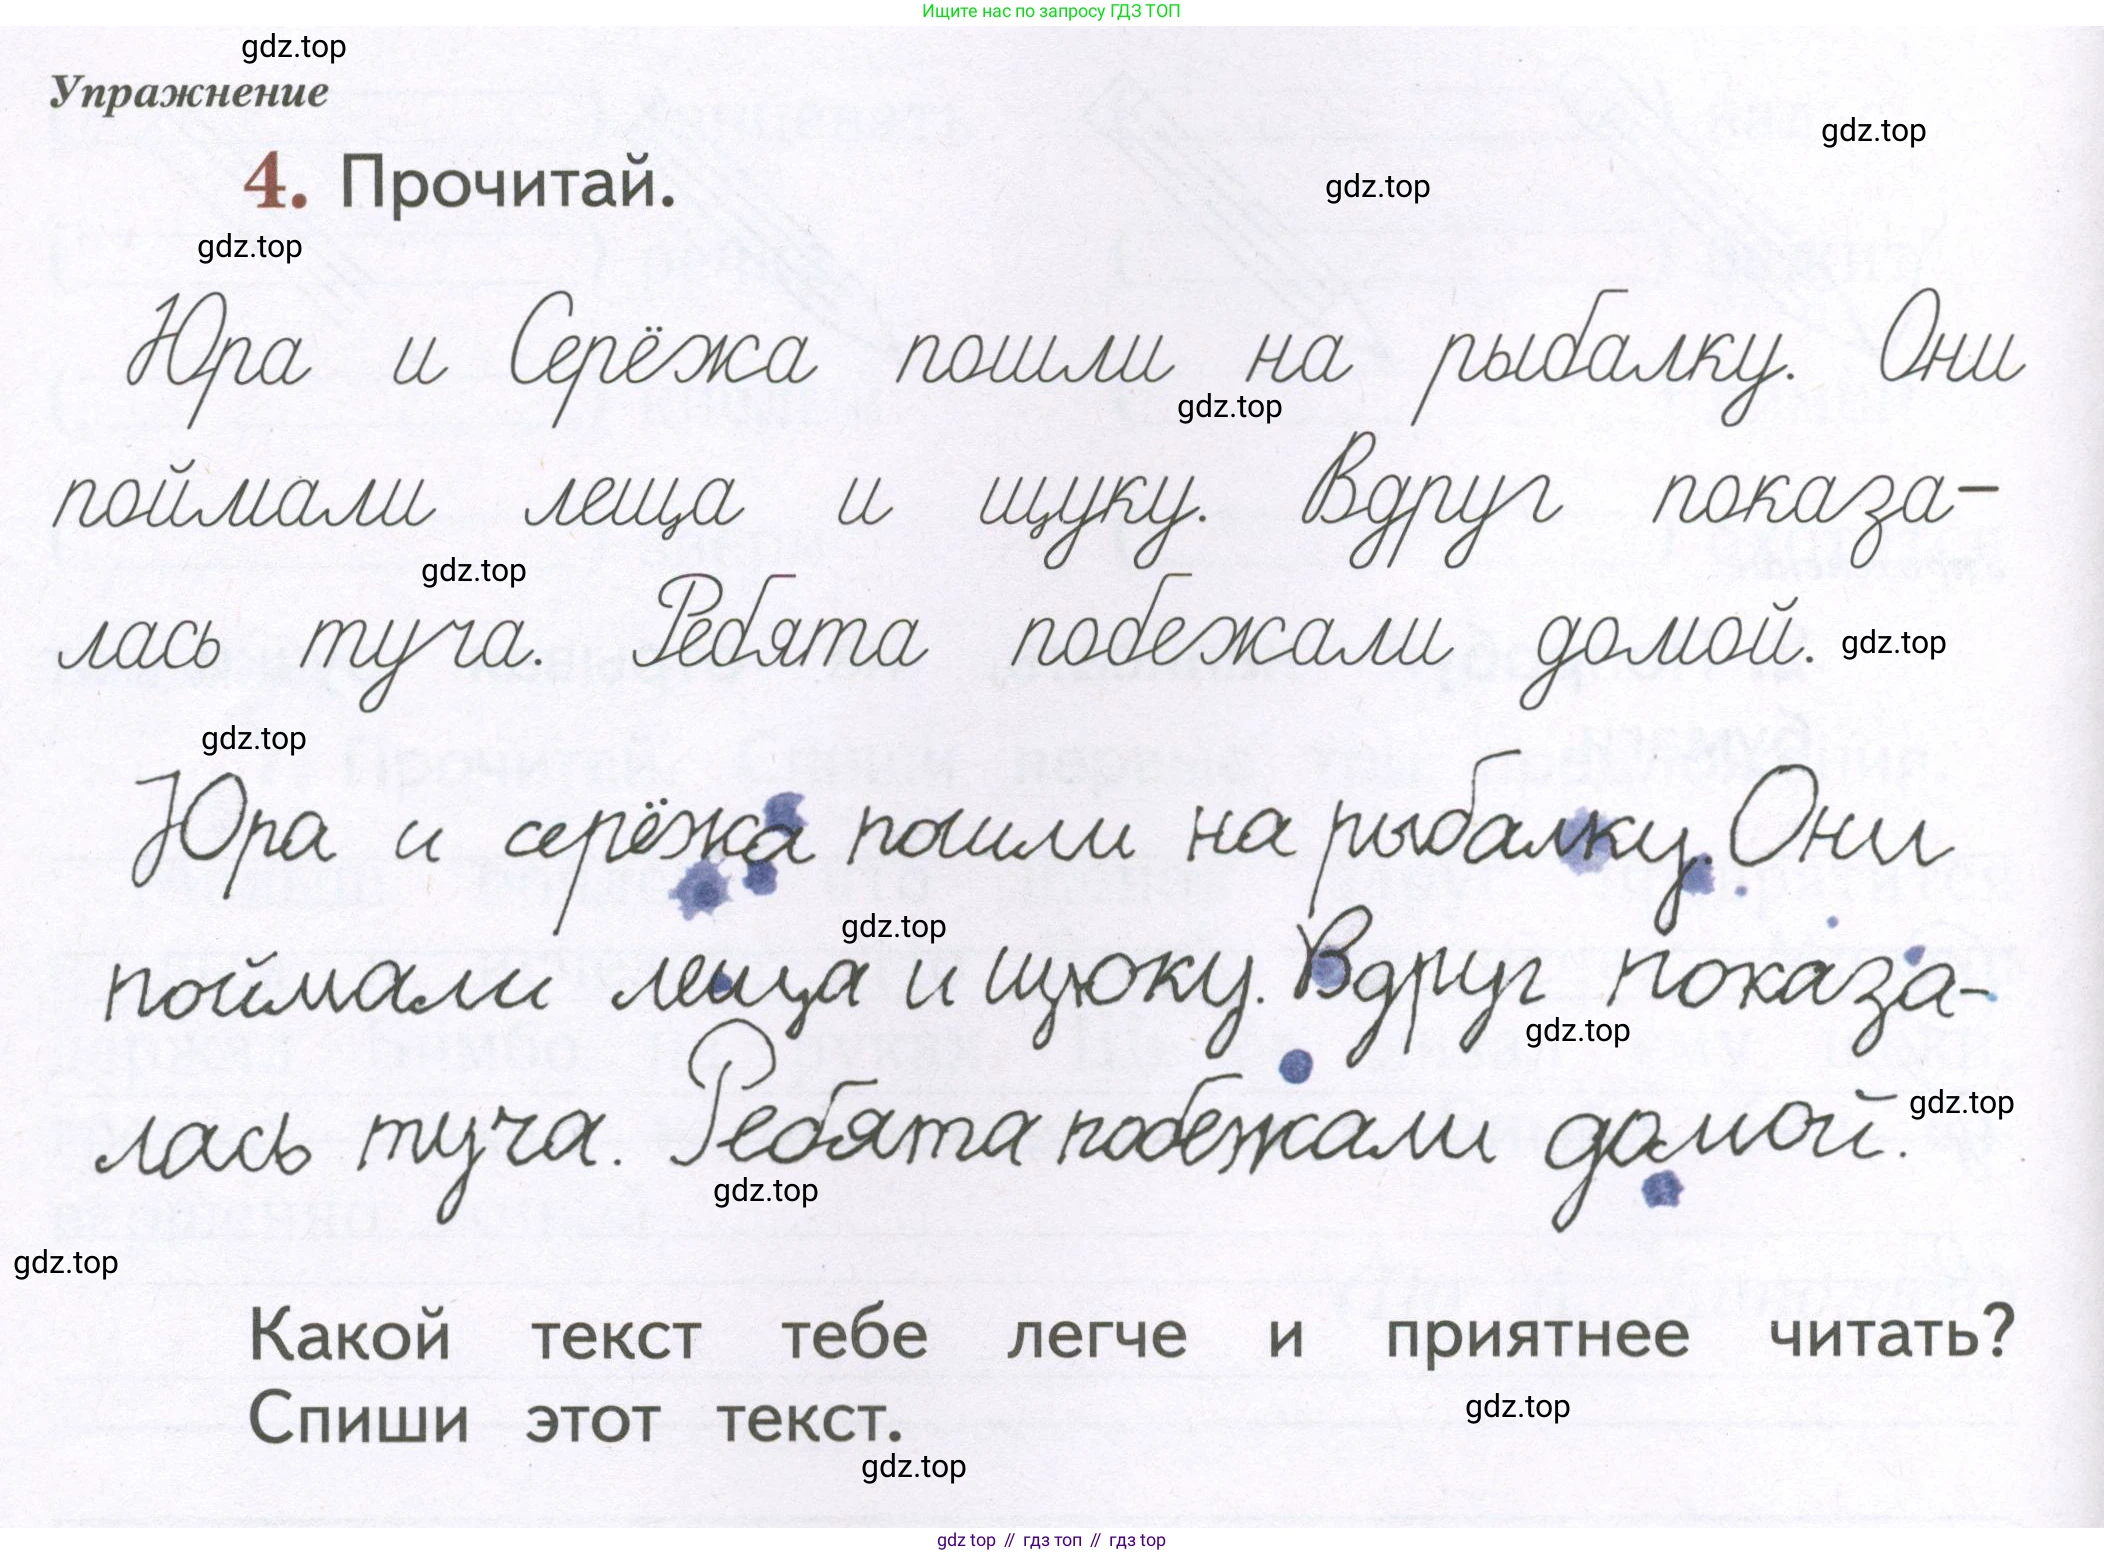 Ищите нас по запросу ГДЗ ТОП
gdz.top
Упражнение
gdz.top
4. Прочитай.
gdz.top
gdz.top
Юра и Серёжа пошли на рыбалку. Они
gdz.top
поймали леща и щуку. Вдруг показа-
gdz.top
лась туча. Ребята побежали домой.
gdz.top
gdz.top
Юра и серёжа пошли на рыбалку. Они
gdz.top
поймали леща и щюку. Вдруг показа-
gdz.top
лась туча. Ребята побежали домой.
gdz.top
gdz.top
gdz.top
Какой текст тебе легче и приятнее читать?
Спиши этот текст.
gdz.top
gdz.top
gdz top // гдз топ // гдз top